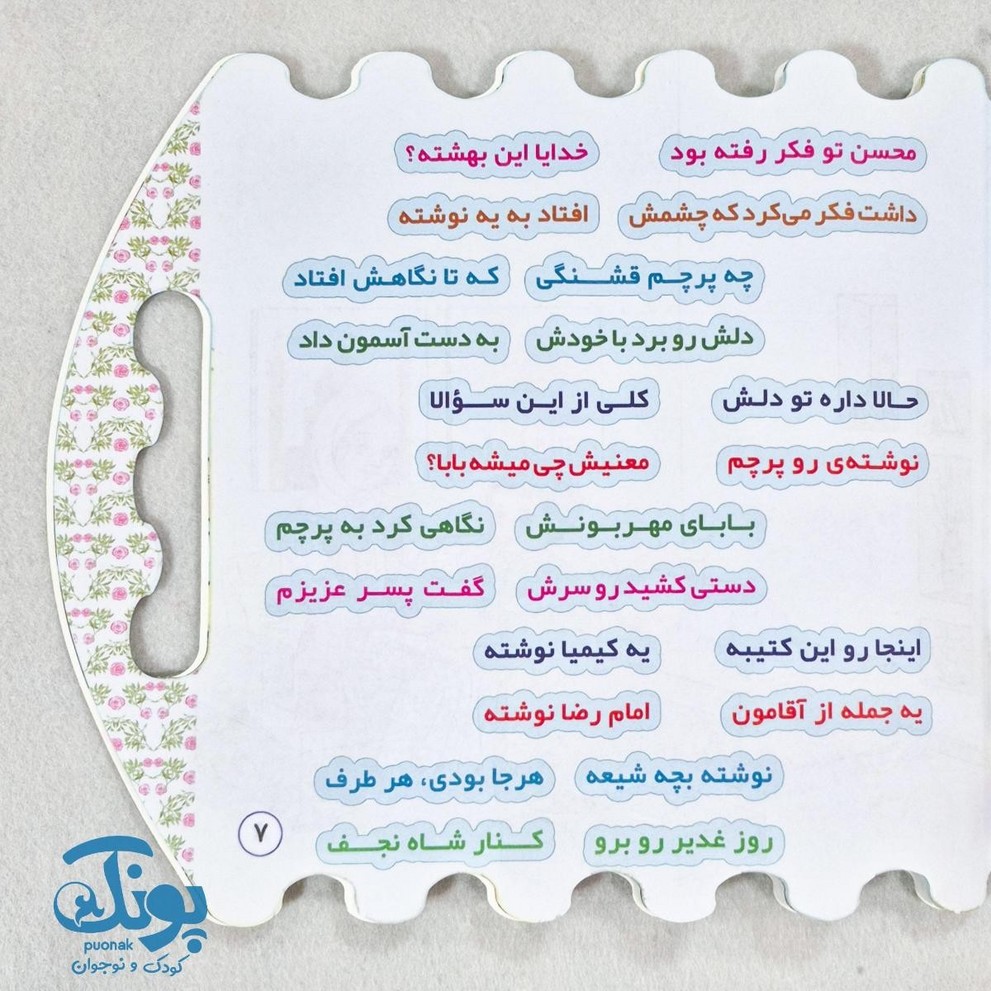 محسن تو فکر رفته بود خدایا این بهشته؟
داشت فکر می‌کرد که چشمش افتاد به یه نوشته
چه پرچم قشنگی که تا نگاهش افتاد
دلش رو برد با خودش به دست آسمون داد
حالا داره تو دلش کلی از این سؤالا
نوشته‌ی رو پرچم معنیش چی میشه بابا؟
بابای مهربونش نگاهی کرد به پرچم
دستی کشید رو سرش گفت پسر عزیزم
اینجا رو این کتیبه یه کیمیا نوشته
یه جمله از آقامون امام رضا نوشته
نوشته بچه شیعه هرجا بودی، هر طرف
روز غدیر رو برو کنار شاه نجف
۷
پونک
puonak
کودک و نوجوان